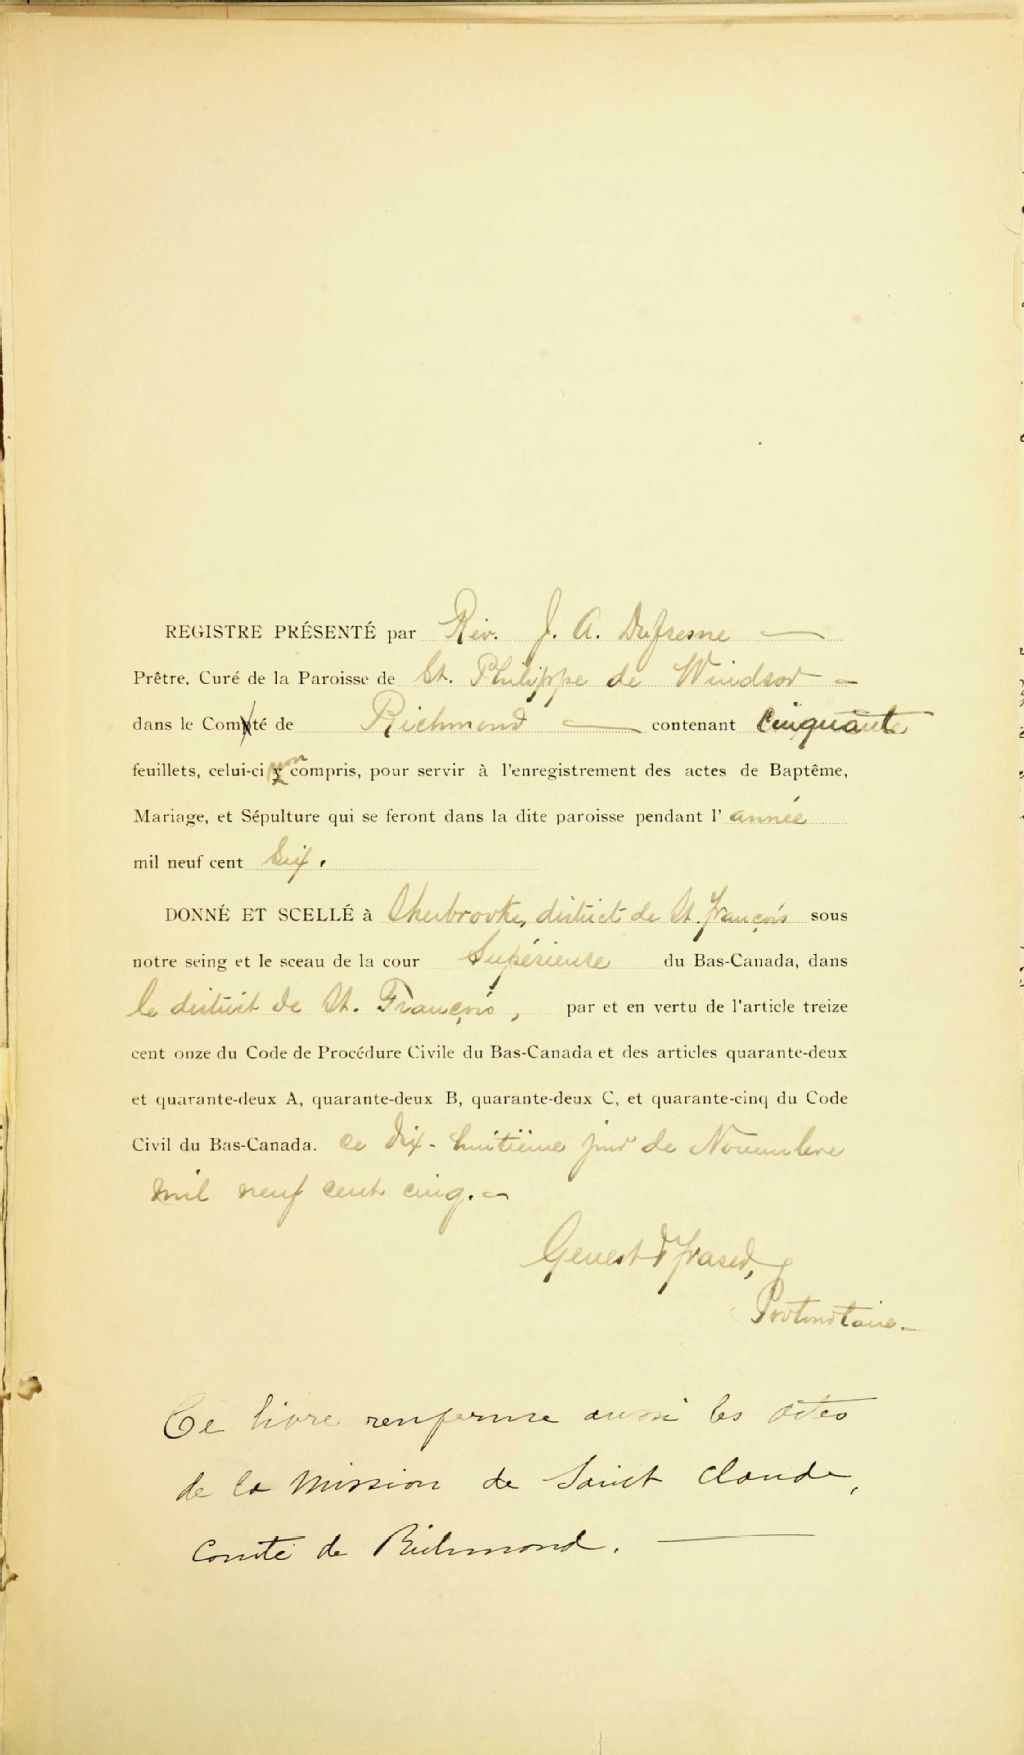 REGISTRE PRÉSENTÉ par Rév. J. A. Dufresne —
Prêtre, Curé de la Paroisse de St. Philippe de Windsor —
dans le Comté de Richmond — contenant cinquante
feuillets, celui-ci non compris, pour servir à l'enregistrement des actes de Baptême,
Mariage, et Sépulture qui se feront dans la dite paroisse pendant l' année
mil neuf cent six.
DONNÉ ET SCELLÉ à Sherbrooke, district de St. François sous
notre seing et le sceau de la cour Supérieure du Bas-Canada, dans
le district de St. François, par et en vertu de l'article treize
cent onze du Code de Procédure Civile du Bas-Canada et des articles quarante-deux
et quarante-deux A, quarante-deux B, quarante-deux C, et quarante-cinq du Code
Civil du Bas-Canada. ce dix-huitième jour de Novembre
mil neuf cent cinq. —
Genest & Fraser,
Protonotaire —
Ce livre renferme aussi les actes
de la Mission de Saint Claude,
Comté de Richmond. —